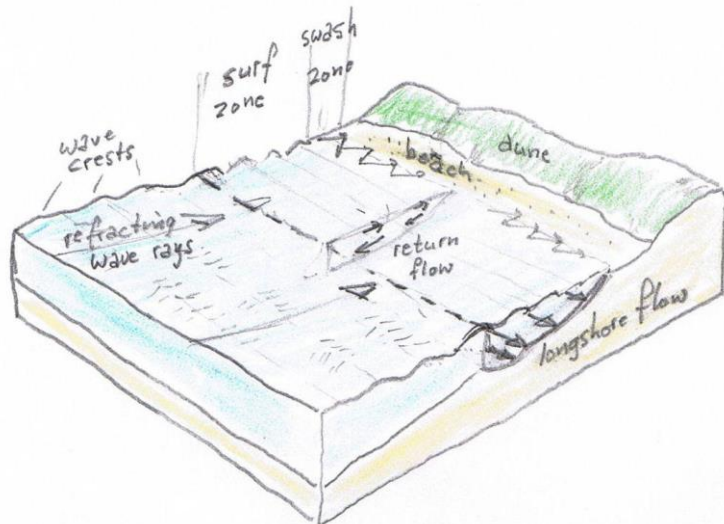 surf
zone
swash
zone
wave
crests
beach
dune
refracting
wave rays
return
flow
longshore flow